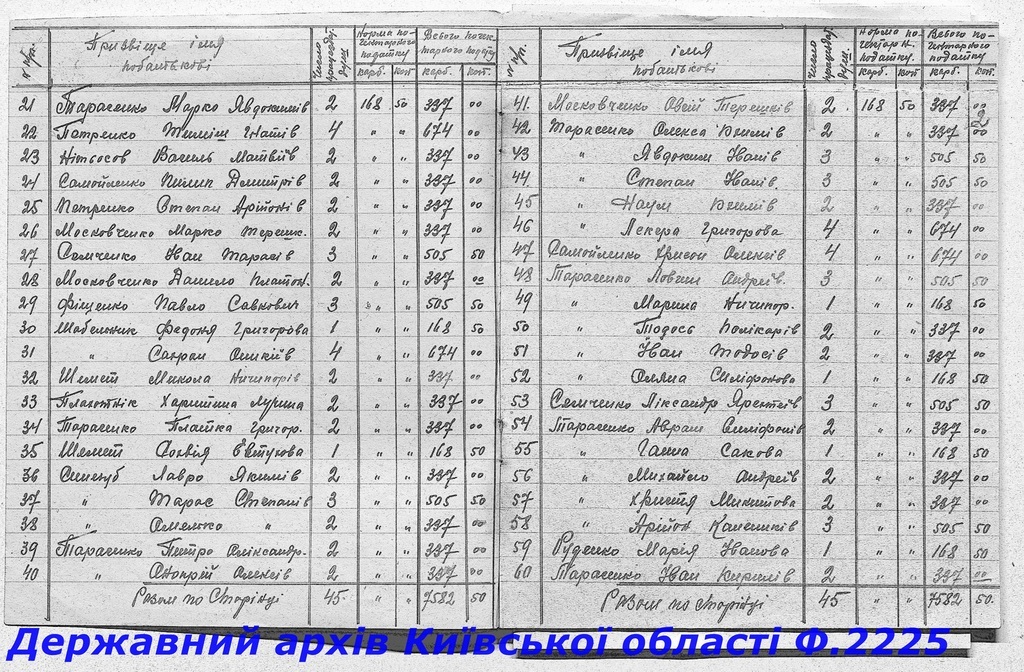 № п/п. Призвіще імя побатькові Число працездат. душ Норма по- чинтарного податку Всього почин- тарного податку
карб. коп карб. коп
21 Тарасенко Марко Явдокимів 2 168 50 337 00
22 Петренко Тиміш Гнатів 4 " " 674 00
23 Василь Матвіїв 2 " " 337 00
24 Самойленко Пилип Дмитрів 2 " " 337 00
25 Петренко Степан 2 " " 337 00
26 Московченко Марко Терешк. 2 " " 337 00
27 Семченко Іван Тарасів 3 " " 505 50
28 Московченко Данило Платон. 2 " " 337 00
29 Павло Савкович 3 " " 505 50
30 Шабельник Федоня Григорова 1 " " 168 50
31 " 4 " " 674 00
32 Шемет Микола Ничипорів 2 " " 337 00
33 Харитина 2 " " 337 00
34 Тарасенко Григор. 2 " " 337 00
35 Шемет 1 " " 168 50
36 Лавро Якимів 2 " " 337 00
37 " Тарас Степанів 3 " " 505 50
38 " Омелько " 2 " " 337 00
39 Тарасенко Петро Оліксандр. 2 " " 337 00
40 " Онопрій Олексів 2 " " 337 00
Разом по Сторінці 45. " " 7582 50
№ п/п. Призвіще імя побатькові Число працездат. душ Норма по- чинтарн. податку. Всього по- чинтарного податку
карб. коп карб. коп.
41. Московченко Овсій Терешків 2. 168 50 337 00
2
42 Тарасенко Олекса 2 " " 337 00
43 " Явдоким Іванів 3 " " 505 50
44 " Степан Іванів 3 " " 505 50
45 " Наум 2 " " 337 00
46 " Григорова 4 " " 674 00
47 Самойленко Олексів 4 " " 674 00
48 Тарасенко Андреїв. 3 " " 505 50
49 " Марина Ничипор. 1 " " 168 50
50 " Тодось Полікарів 2 " " 337 00
51 " Іван Тодосів 2 " " 337 00
52 " Оляна 1 " " 168 50
53 Семченко Ліксандр 3 " " 505 50
54 Тарасенко Аврам 2 " " 337 00
55 " Ганна Сакова 1 " " 168 50
56 " Михайло Андреїв 2 " " 337 00
57 " Христя Микитова 2 " " 337 00
58 " 3 " " 505 50
59 Руденко Марія Іванова 1 " " 168 50
60 Тарасенко Іван Кирилів 2 " " 337 00
Разом по Сторінці 45 " " 7582 50.
Державний архів Київської області Ф.2225